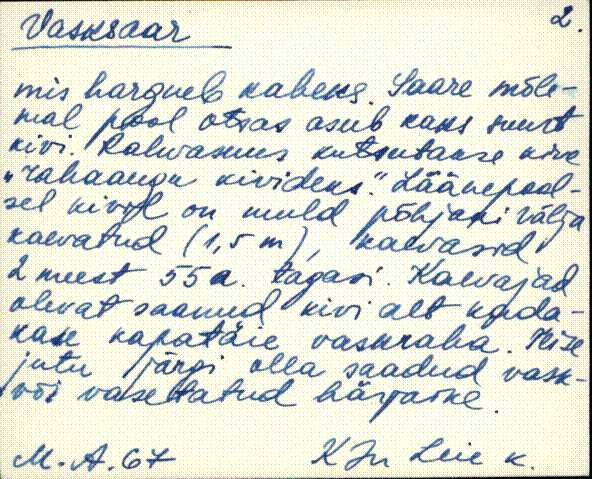 Vasksaar 2.
mis hargneb kaheks. Saare mõle-
mal pool otsas asub kaks suurt
kivi. Rahvasuus kutsutakse neid
"rahaaugu kivideks." Läänepool-
sel kivil on muld põhjani välja
kaevatud (1,5 m), kaevasid
2 meest 55 a. tagasi. Kaevajad
olevat saanud kivi alt kada-
kase kapatäie vaskraha. Teise
jutu järgi olla saadud vask-
või vasetatud härjaike.
M. A. 67 KJn Leie k.